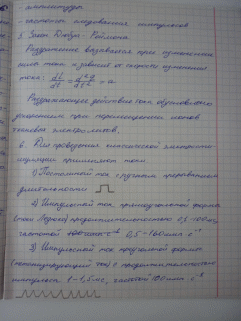 - амплитуда,
- частота следования импульсов
5. Закон Дюбуа - Реймона
Раздражение вызывается при изменении
силы тока и зависит от скорости изменения
тока: di/dt = d²q/dt² = a.
Раздражающее действие тока обусловлено
ускорением при перемещении ионов
тканевых электролитов.
6. Для проведения клинической электрости-
муляции применяют токи
1) Постоянный ток с ручным прерыванием
длительности
2) Импульсный ток прямоугольной формы
(токи Ледюка) продолжительностью
частотой 0,5-160 имп с⁻¹
3) Импульсный ток треугольной формы
(тетанизирующий ток) с продолжительностью
импульса 1-1,5 мс, частотой 100 имп. с⁻¹